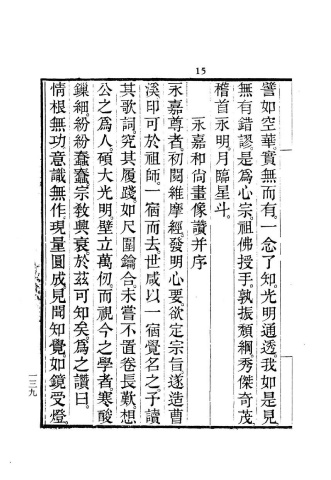 15
譬如空華實無而有一念了知光明通透我如是見
無有錯謬是爲心宗祖佛授手孰振頹綱秀傑奇茂
稽首永明月臨星斗
永嘉和尚畫像讚并序
永嘉尊者初閱維摩經發明心要欲定宗旨遂造曹
溪印可於祖師一宿而去世咸以一宿覺名之予讀
其歌詞究其履踐如尺圍鑰合未嘗不置卷長歎想
公之爲人碩大光明壁立萬仞而視今之學者寒酸
鏁細紛紛蠢蠢宗教興衰於茲可知矣爲之讚曰
情根無功意識無作現量圓成見聞知覺如鏡受燈
一三九